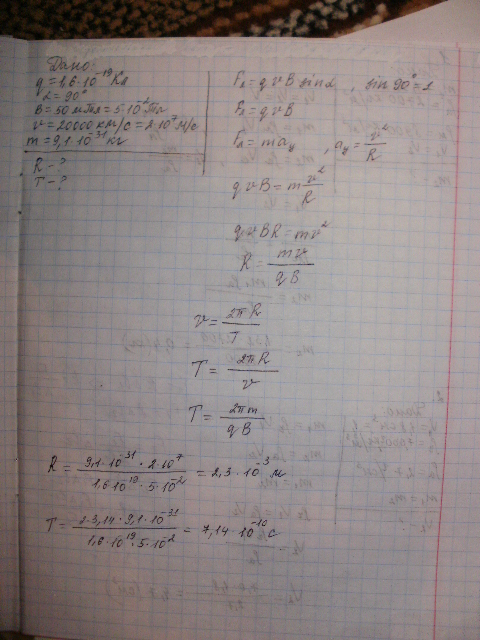 Дано:
q = 1,6·10⁻¹⁹ Кл
α = 90°
B = 50 мТл = 5·10⁻² Тл
v = 20000 км/с = 2·10⁷ м/с
m = 9,1·10⁻³¹ кг
R - ?
T - ?
Fл = q v B sin α , sin 90° = 1
Fл = q v B
Fл = m aц , aц = v²/R
q v B = m v²/R
q v B R = m v²
R = mv/qB
v = 2πR/T
T = 2πR/v
T = 2πm/qB
R = 9,1·10⁻³¹·2·10⁷/1,6·10¹⁹·5·10⁻² = 2,3·10⁻³ м
T = 2·3,14·9,1·10⁻³¹/1,6·10¹⁹·5·10⁻² = 7,14·10⁻¹⁰ с